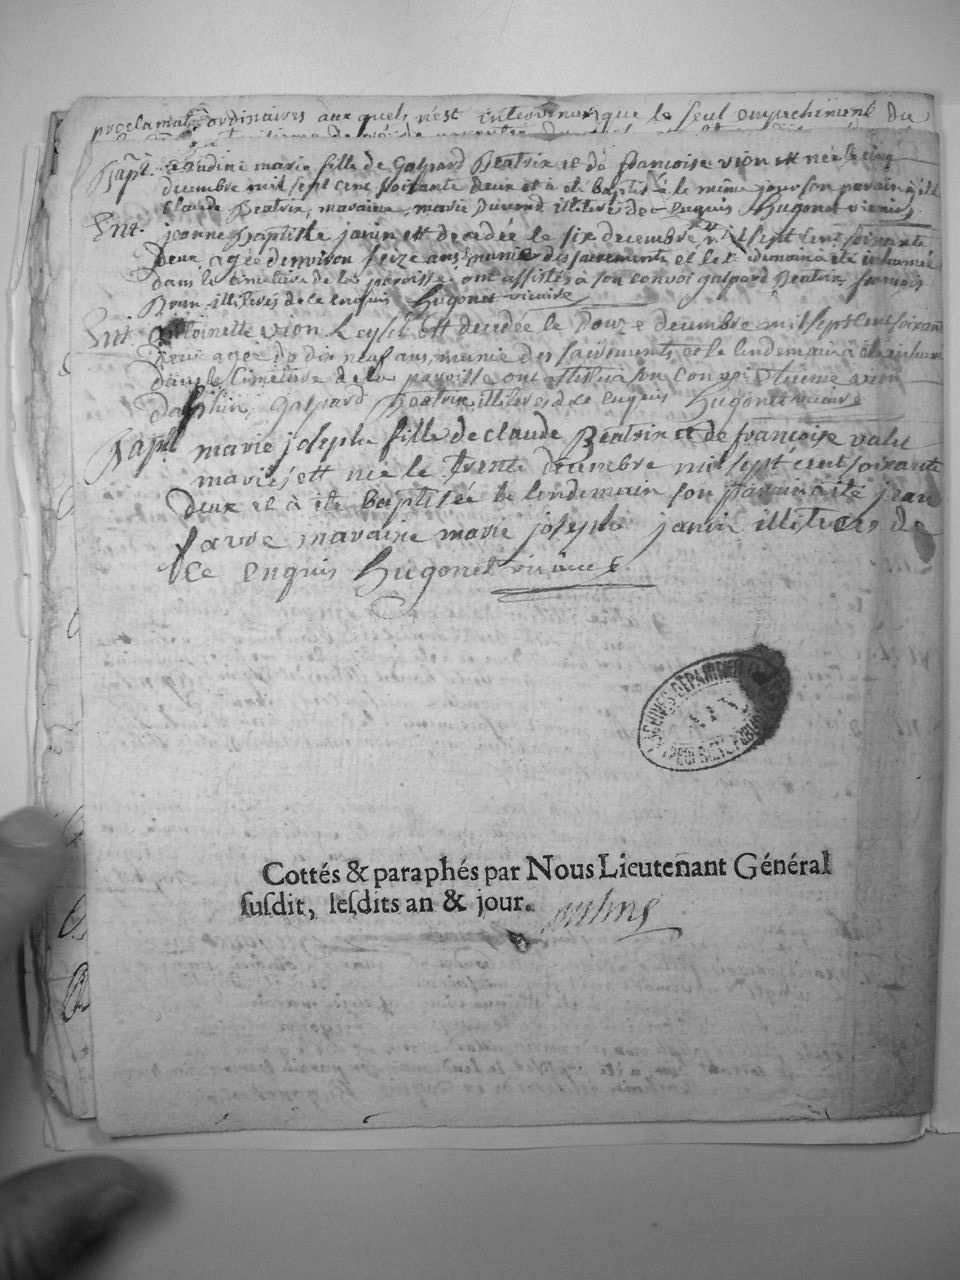 proclamat ordinaires aux quels n'est intervenu que le seul empechement du
Bapt. claudine marie fille de Gaspard Beatrix et de françoise vion est née le cinq
decembre mil sept cent soixante deux et à été baptisé le même jour son parain à été
Claude Beatrix, maraine, marie Durand illiteré de ce enquis Hugonet vicaire
Ent. jeanne Baptiste janin est decedée le six decembre mil sept cent soixante
deux agée d'environ seize ans, munie des sacrements et le l'endemain à été inhumée
dans le cimetiere de la paroisse, ont assistés à son convoi gaspard Beatrix françois
Brun illiteres de ce enquis Hugonet vicaire
Ent. antoinette vion est decedée le douze decembre mil sept cent soixante
deux agée de dix neuf ans, munie des sacrements et le lendemain à été inhumée
dans le cimetiere de la paroisse ont assisté a son convoi vion
dauphin, Gaspard Beatrix illiteres de ce enquis Hugonet vicaire
Bapt marie josephe fille de claude Beatrix et de françoise valet
mariés est née le trente decembre mil sept cent soixante
deux et à été baptisée le lendemain son parain à été jean
favre maraine marie josephe janin illiteres de
ce enquis Hugonet vicaire
ARCHIVES DEPARTEMENTALES
PROPRIETE PUBLIQUE
Cottés & paraphés par Nous Lieutenant Général
susdit, lesdits an & jour.